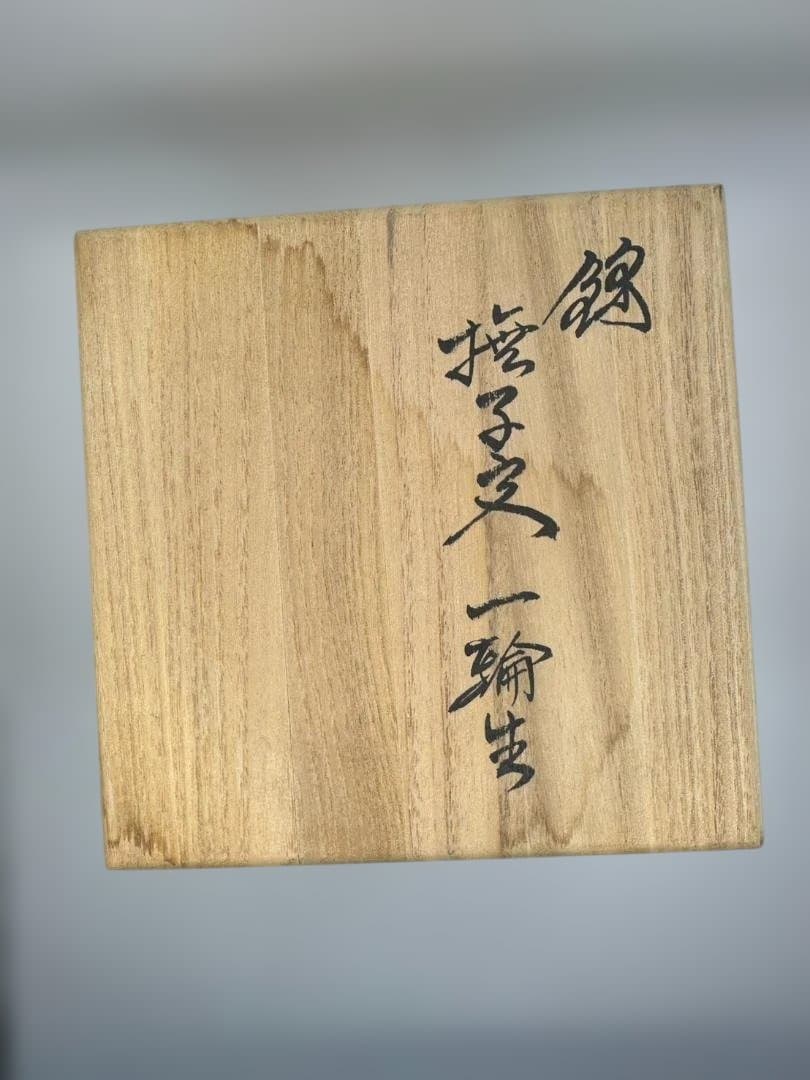 錦
撫子文 一輪生